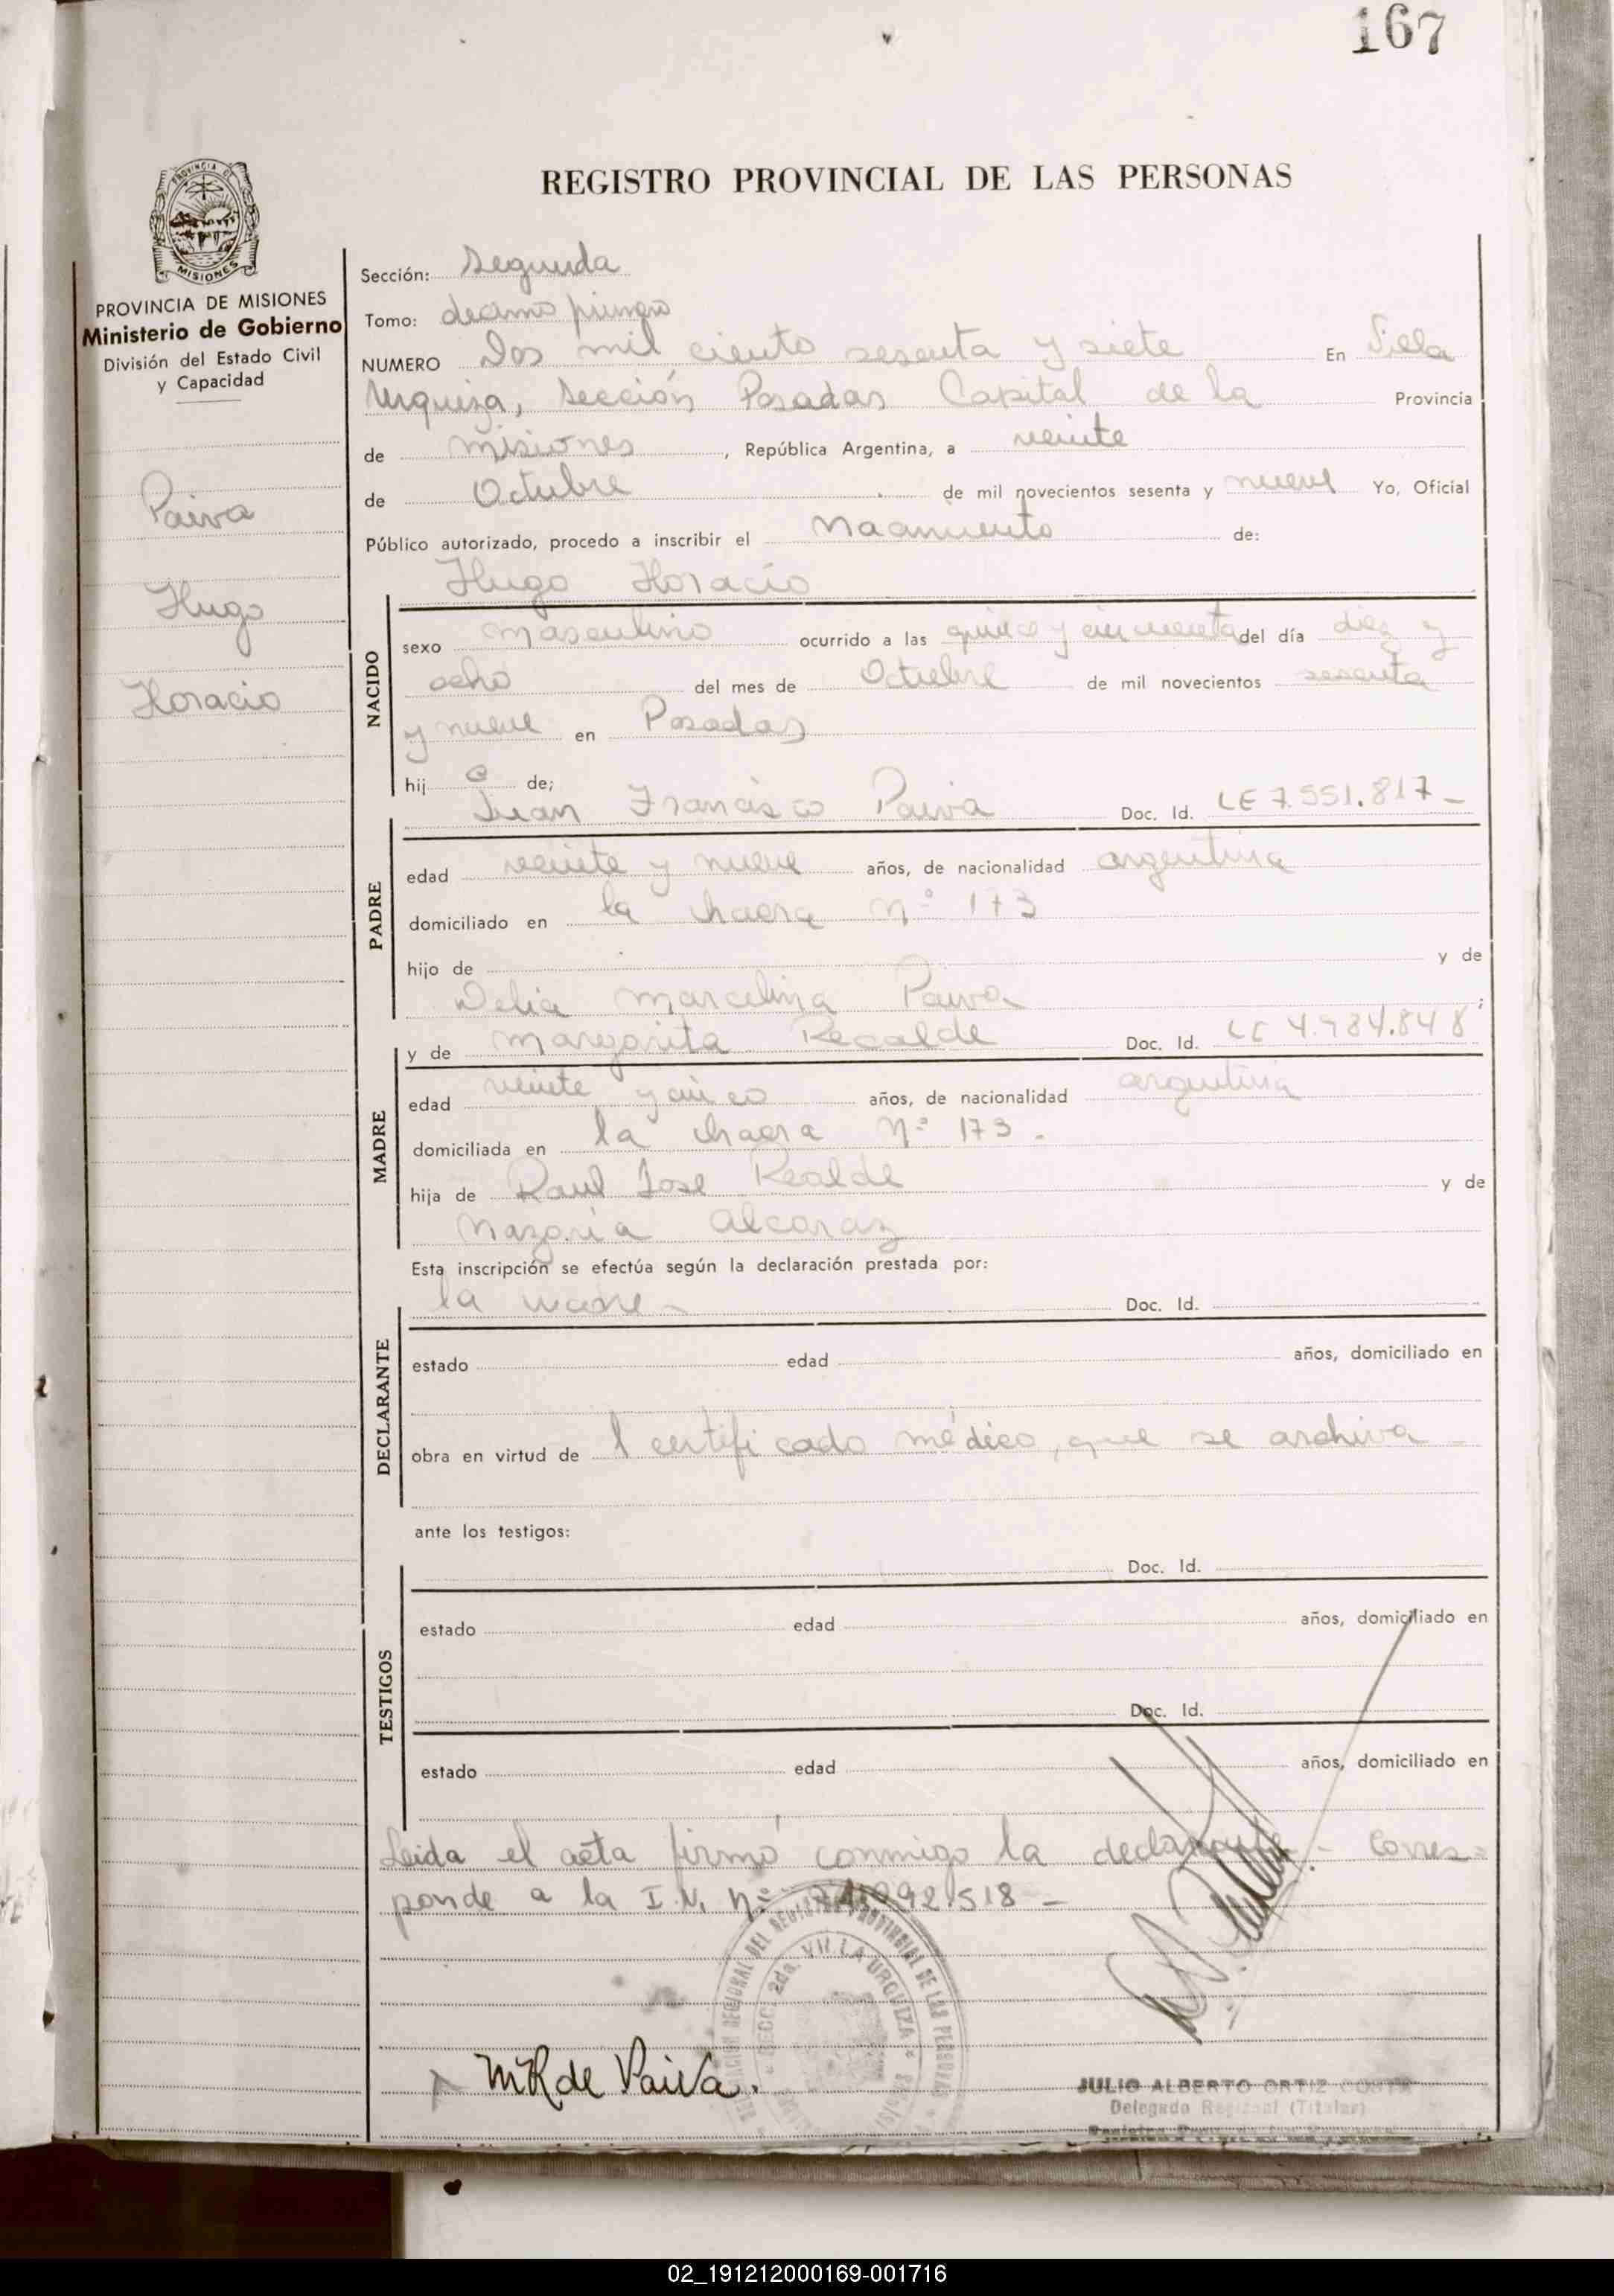 167
REGISTRO PROVINCIAL DE LAS PERSONAS
PROVINCIA DE MISIONES
MISIONES
PROVINCIA DE MISIONES
Ministerio de Gobierno
División del Estado Civil
y Capacidad
Paiva
Hugo
Horacio
Sección: Segunda
Tomo: decimo primero
NUMERO Dos mil ciento sesenta y siete En Villa
Urquiza, Sección Posadas Capital de la Provincia
de Misiones, República Argentina, a veinte
de Octubre de mil novecientos sesenta y nueve Yo, Oficial
Público autorizado, procedo a inscribir el Nacimiento de:
Hugo Horacio
NACIDO
sexo masculino ocurrido a las y cincuenta del día diez y
ocho del mes de Octubre de mil novecientos sesenta
y nueve en Posadas
hij o de;
Juan Francisco Paiva Doc. Id. LE 7.551.817-
PADRE
edad veinte y nueve años, de nacionalidad argentina
domiciliado en la chacra Nº 173
hijo de y de
Delia Marcelina Paiva ;
y de Margarita Recalde Doc. Id. LC 4.984.848
MADRE
edad veinte y cinco años, de nacionalidad argentina
domiciliada en la chacra Nº 173.
hija de Raul Jose Realde y de
Nazaria Alcaraz
Esta inscripción se efectúa según la declaración prestada por:
la madre - Doc. Id.
DECLARANTE
estado edad años, domiciliado en
obra en virtud de l certificado médico, que se archiva -
ante los testigos:
Doc. Id.
TESTIGOS
estado edad años, domiciliado en
Doc. Id.
estado edad años, domiciliado en
Leida el acta firmó conmigo la declarante - Corres=
ponde a la I.N. nº 992.518 -
SECC. 2da. VILLA URQUIZA
MR de Paiva.
JULIO ALBERTO ORTIZ COSTA
Delegado Regional (Titular)
02_191212000169-001716